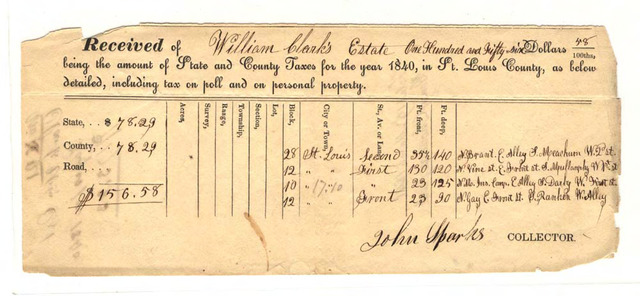 Received of William Clark's Estate One Hundred and Fifty six Dollars 58/100ths,
being the amount of State and County Taxes for the year 1840, in St. Louis County, as below
detailed, including tax on poll and on personal property.
State, . . $ 78.29
County, . . 78.29
Road, . . .
$156.58
Acres, Survey, Range, Township, Section, Lot, Block, City or Town, St., Av. or Lane, Ft. front, Ft. deep,
28 St. Louis Second 35½ 140 N. Brant. E Alley S. Meachum W. 2d st.
12 " " First 130 120 N. Vine st. E. Front st. S. Mullanphy W. 1st st
10 " " " 23 125 Ins. Comp. E Alley S. Darby W. First st.
12 " Front 23 30 N. Gay E Front St. S. Ranken W. Alley
John Sparks COLLECTOR.